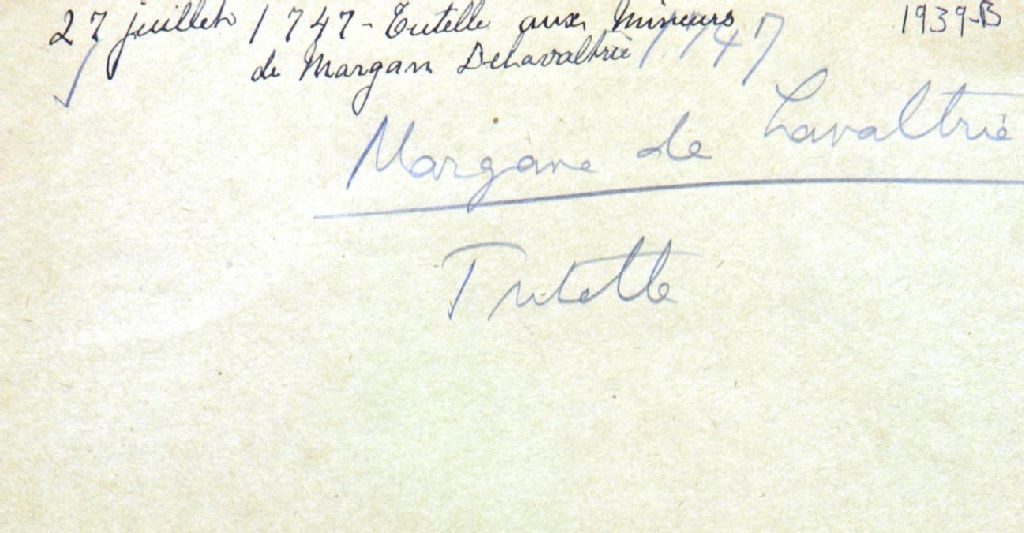 27 juillet 1747 - Tutelle aux Mineurs 1939-B
de Margann DeLavaltrie 1747
Margane de Lavaltrie
Tutelle